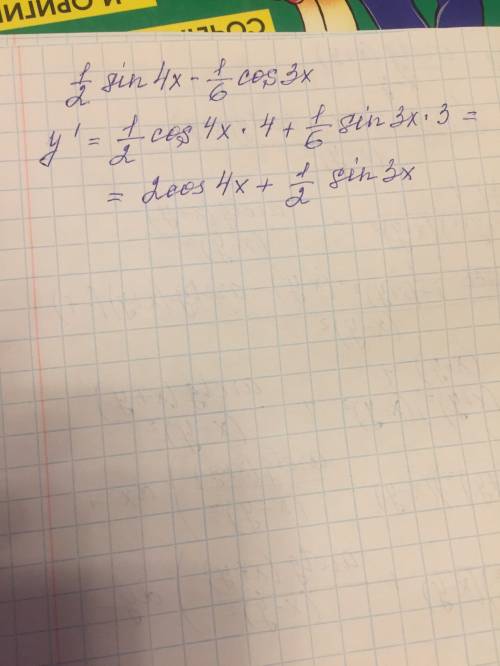 И ОРИГИ
СОЧЕ
1/2 sin 4x - 1/6 cos 3x
y' = 1/2 cos 4x · 4 + 1/6 sin 3x · 3 =
= 2cos 4x + 1/2 sin 3x